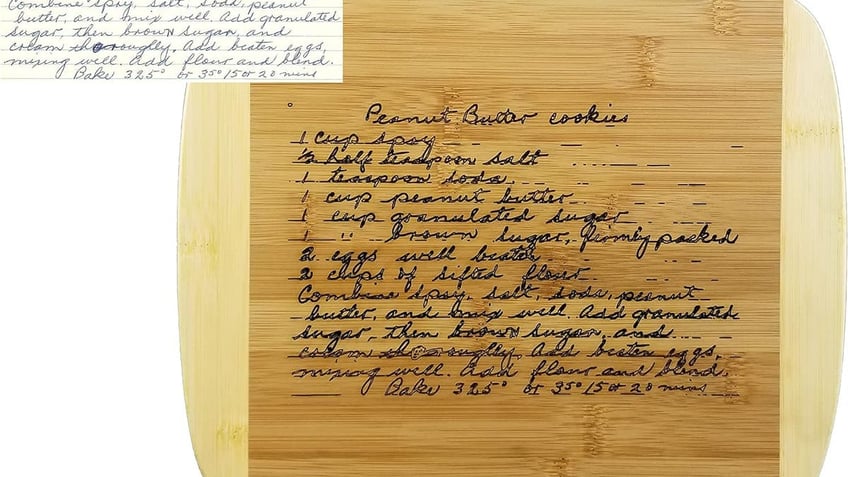 Combine spry, salt, soda, peanut
butter, and mix well. Add granulated
sugar, then brown sugar, and
cream thoroughly. Add beaten eggs,
mixing well. Add flour and blend.
Bake 325° or 350 15 or 20 mins
Peanut Butter cookies
1 cup spry
½ half teaspoon salt
1 teaspoon soda
1 cup peanut butter
1 cup granulated sugar
1 " brown sugar, firmly packed
2 eggs well beaten
2 cups of sifted flour
Combine spry, salt, soda, peanut
butter, and mix well. Add granulated
sugar, then brown sugar, and
cream thoroughly. Add beaten eggs,
mixing well. Add flour and blend.
Bake 325° or 350 15 or 20 mins